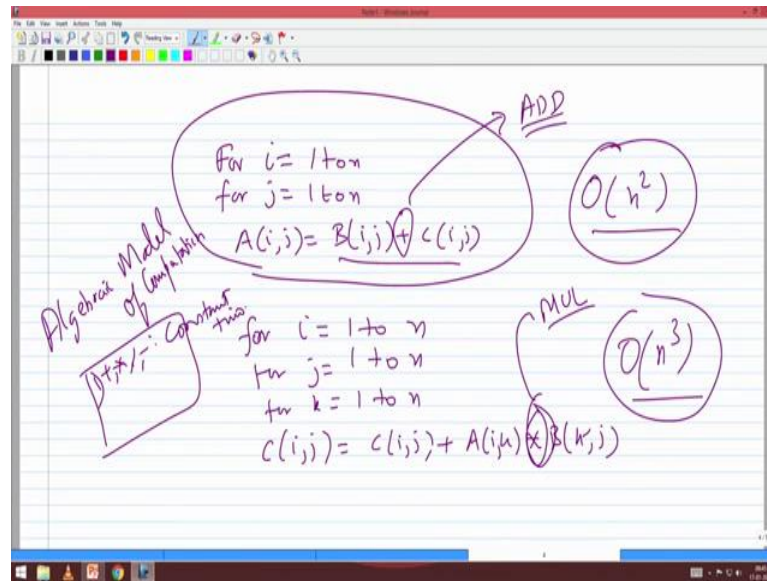 Note1 - Windows Journal
File Edit View Insert Actions Tools Help
Reading View
B I
ADD
For i = 1 to n
for j = 1 to n
A(i,j) = B(i,j) + C(i,j)
O(n²)
Algebraic Model
of Computation
+,*,/,- : Constant
time
MUL
for i = 1 to n
for j = 1 to n
for k = 1 to n
C(i,j) = C(i,j) + A(i,k) * B(k,j)
O(n³)